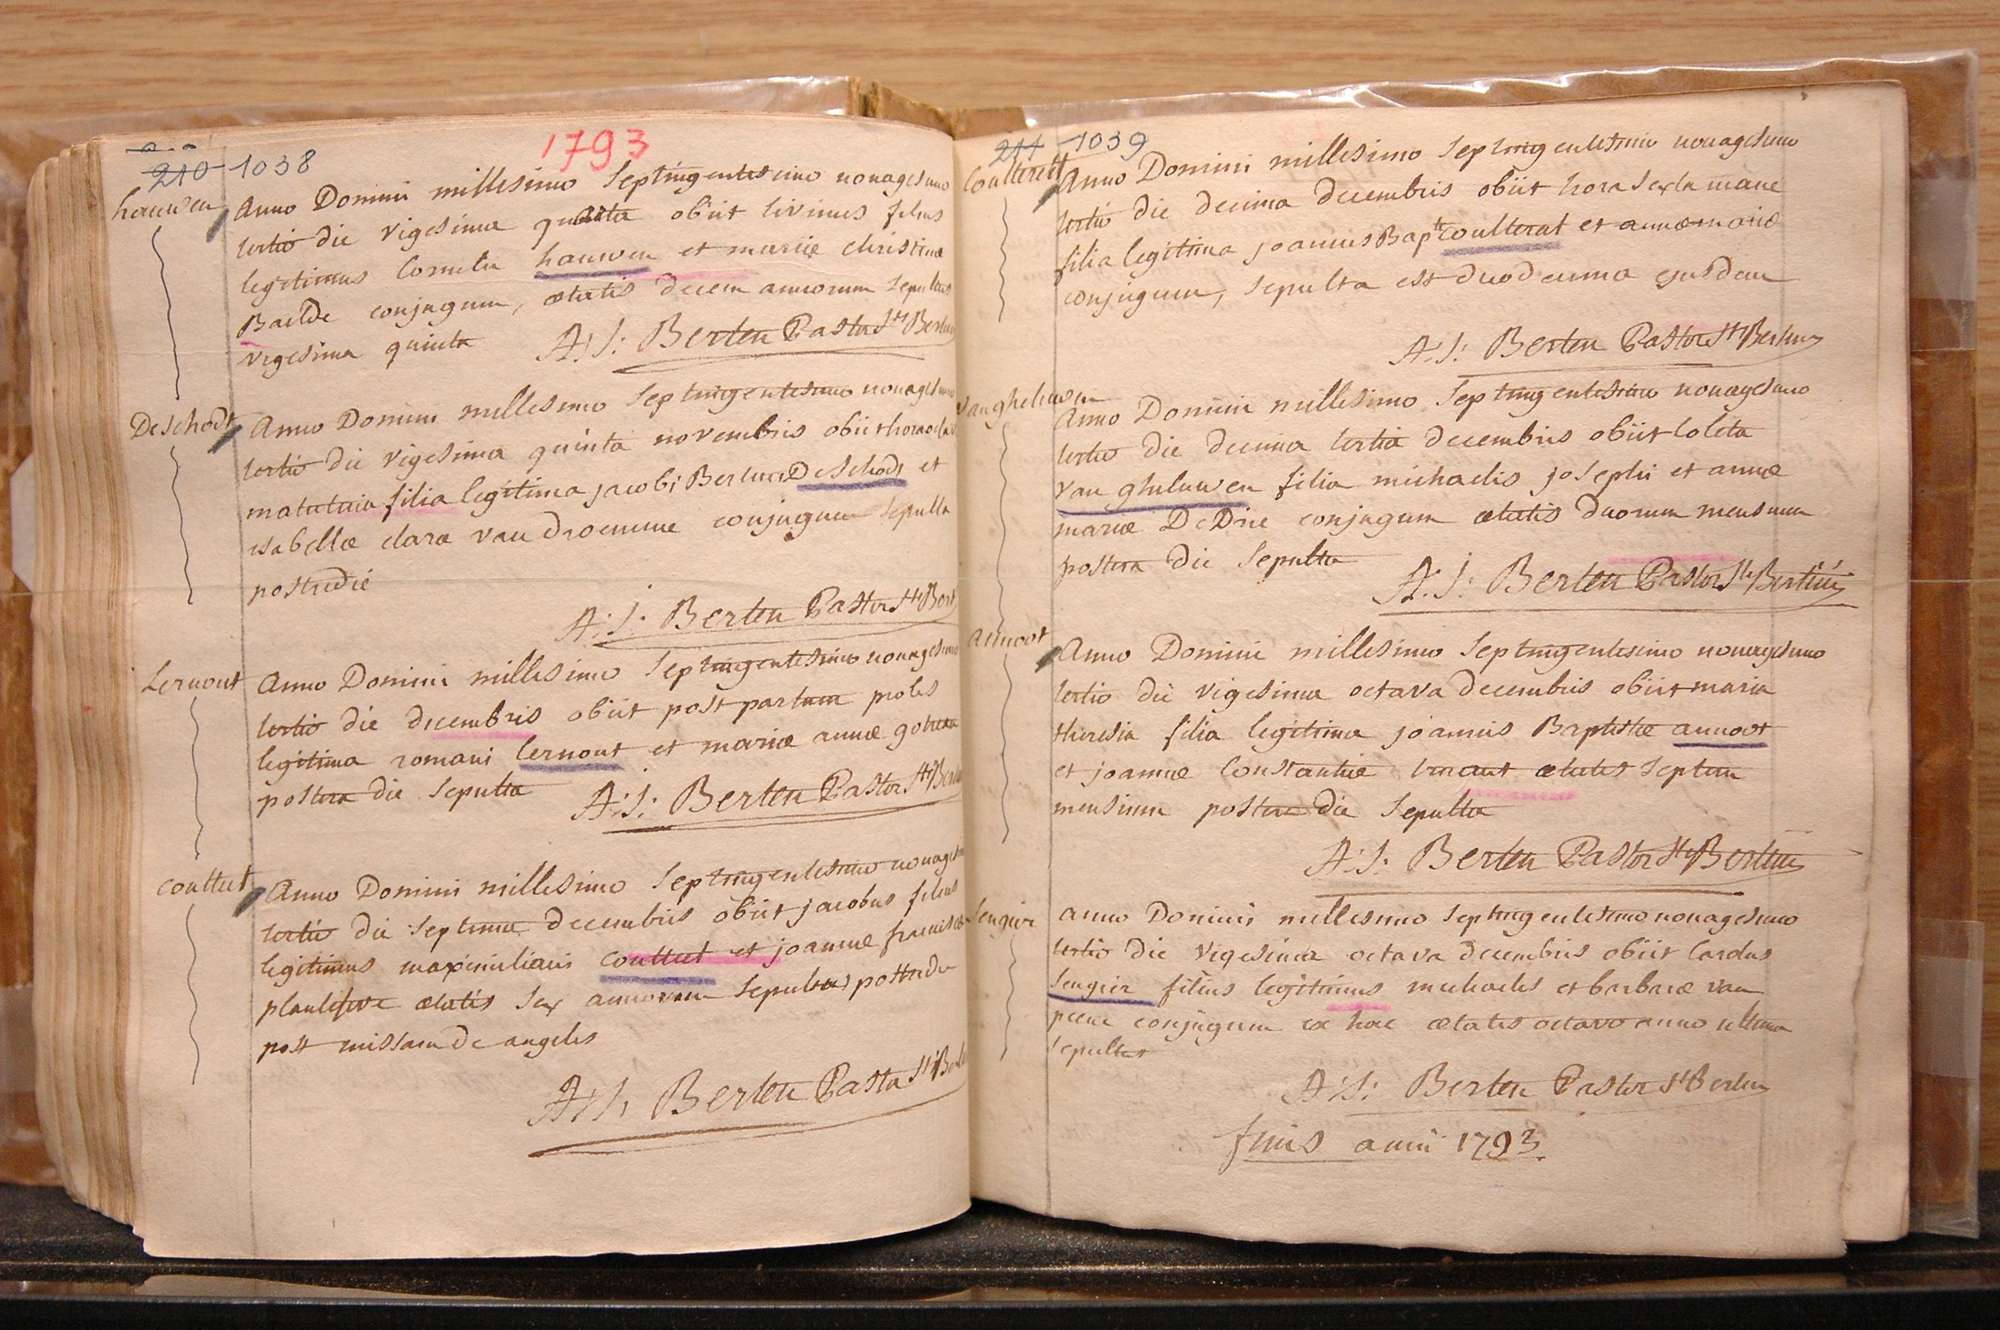 1793
210 1038
hauwen
Anno Domini millesimo septingentesimo nonagesimo
tertio die vigesima quinta obiit livinus filius
legitimus Cornelii hauwen et mariæ christinæ
Baelde conjugum, ætatis decem annorum sepultus
vigesima quinta
A: J: Berten Pastor Sti Bertini
Deschodt
Anno Domini millesimo septingentesimo nonagesimo
tertio die vigesima quinta novembris obiit hora
matutina filia legitima jacobi Bertini Deschodt et
isabellæ claræ van Droemme conjugum sepulta
postridie
A: J: Berten Pastor Sti Bert
Lernout
Anno Domini millesimo septingentesimo nonagesimo
tertio die decembris obiit post partum proles
legitima romani lernout et mariæ annæ
postera die sepulta
A: J: Berten Pastor Sti Bertin
couttut
Anno Domini millesimo septingentesimo nonagesimo
tertio die septima decembris obiit jacobus filius
legitimus maximiliani couttut et joannæ franciscæ
ætatis sex annorum sepultus postridie
post missam de angelis
A: J: Berten Pastor Sti Bertin
211 1039
Coulterett
Anno Domini millesimo septingentesimo nonagesimo
tertio die decima decembris obiit hora sexta mane
filia legitima joannis Bapt coulterat et annæ mariæ
conjugum, sepulta est duodecima ejusdem
A: J: Berten Pastor Sti Bertini
van gheluwen
Anno Domini millesimo septingentesimo nonagesimo
tertio die decima tertia decembris obiit Coleta
van gheluwen filia michaelis josephi et annæ
mariæ conjugum ætatis duorum mensium
postera die sepulta
A: J: Berten Pastor Sti Bertini
annoot
Anno Domini millesimo septingentesimo nonagesimo
tertio die vigesima octava decembris obiit maria
theresia filia legitima joannis Baptistæ annoot
et joannæ Constantiæ ætatis septem
mensium postera die sepulta
A: J: Berten Pastor Sti Bertini
Sengier
anno Domini millesimo septingentesimo nonagesimo
tertio die vigesima octava decembris obiit Carolus
Sengier filius legitimus michaelis et barbaræ van
peene conjugum ex hac ætatis octavo anno ultima
sepultus
A: J: Berten Pastor St Bertini
finis anni 1793.